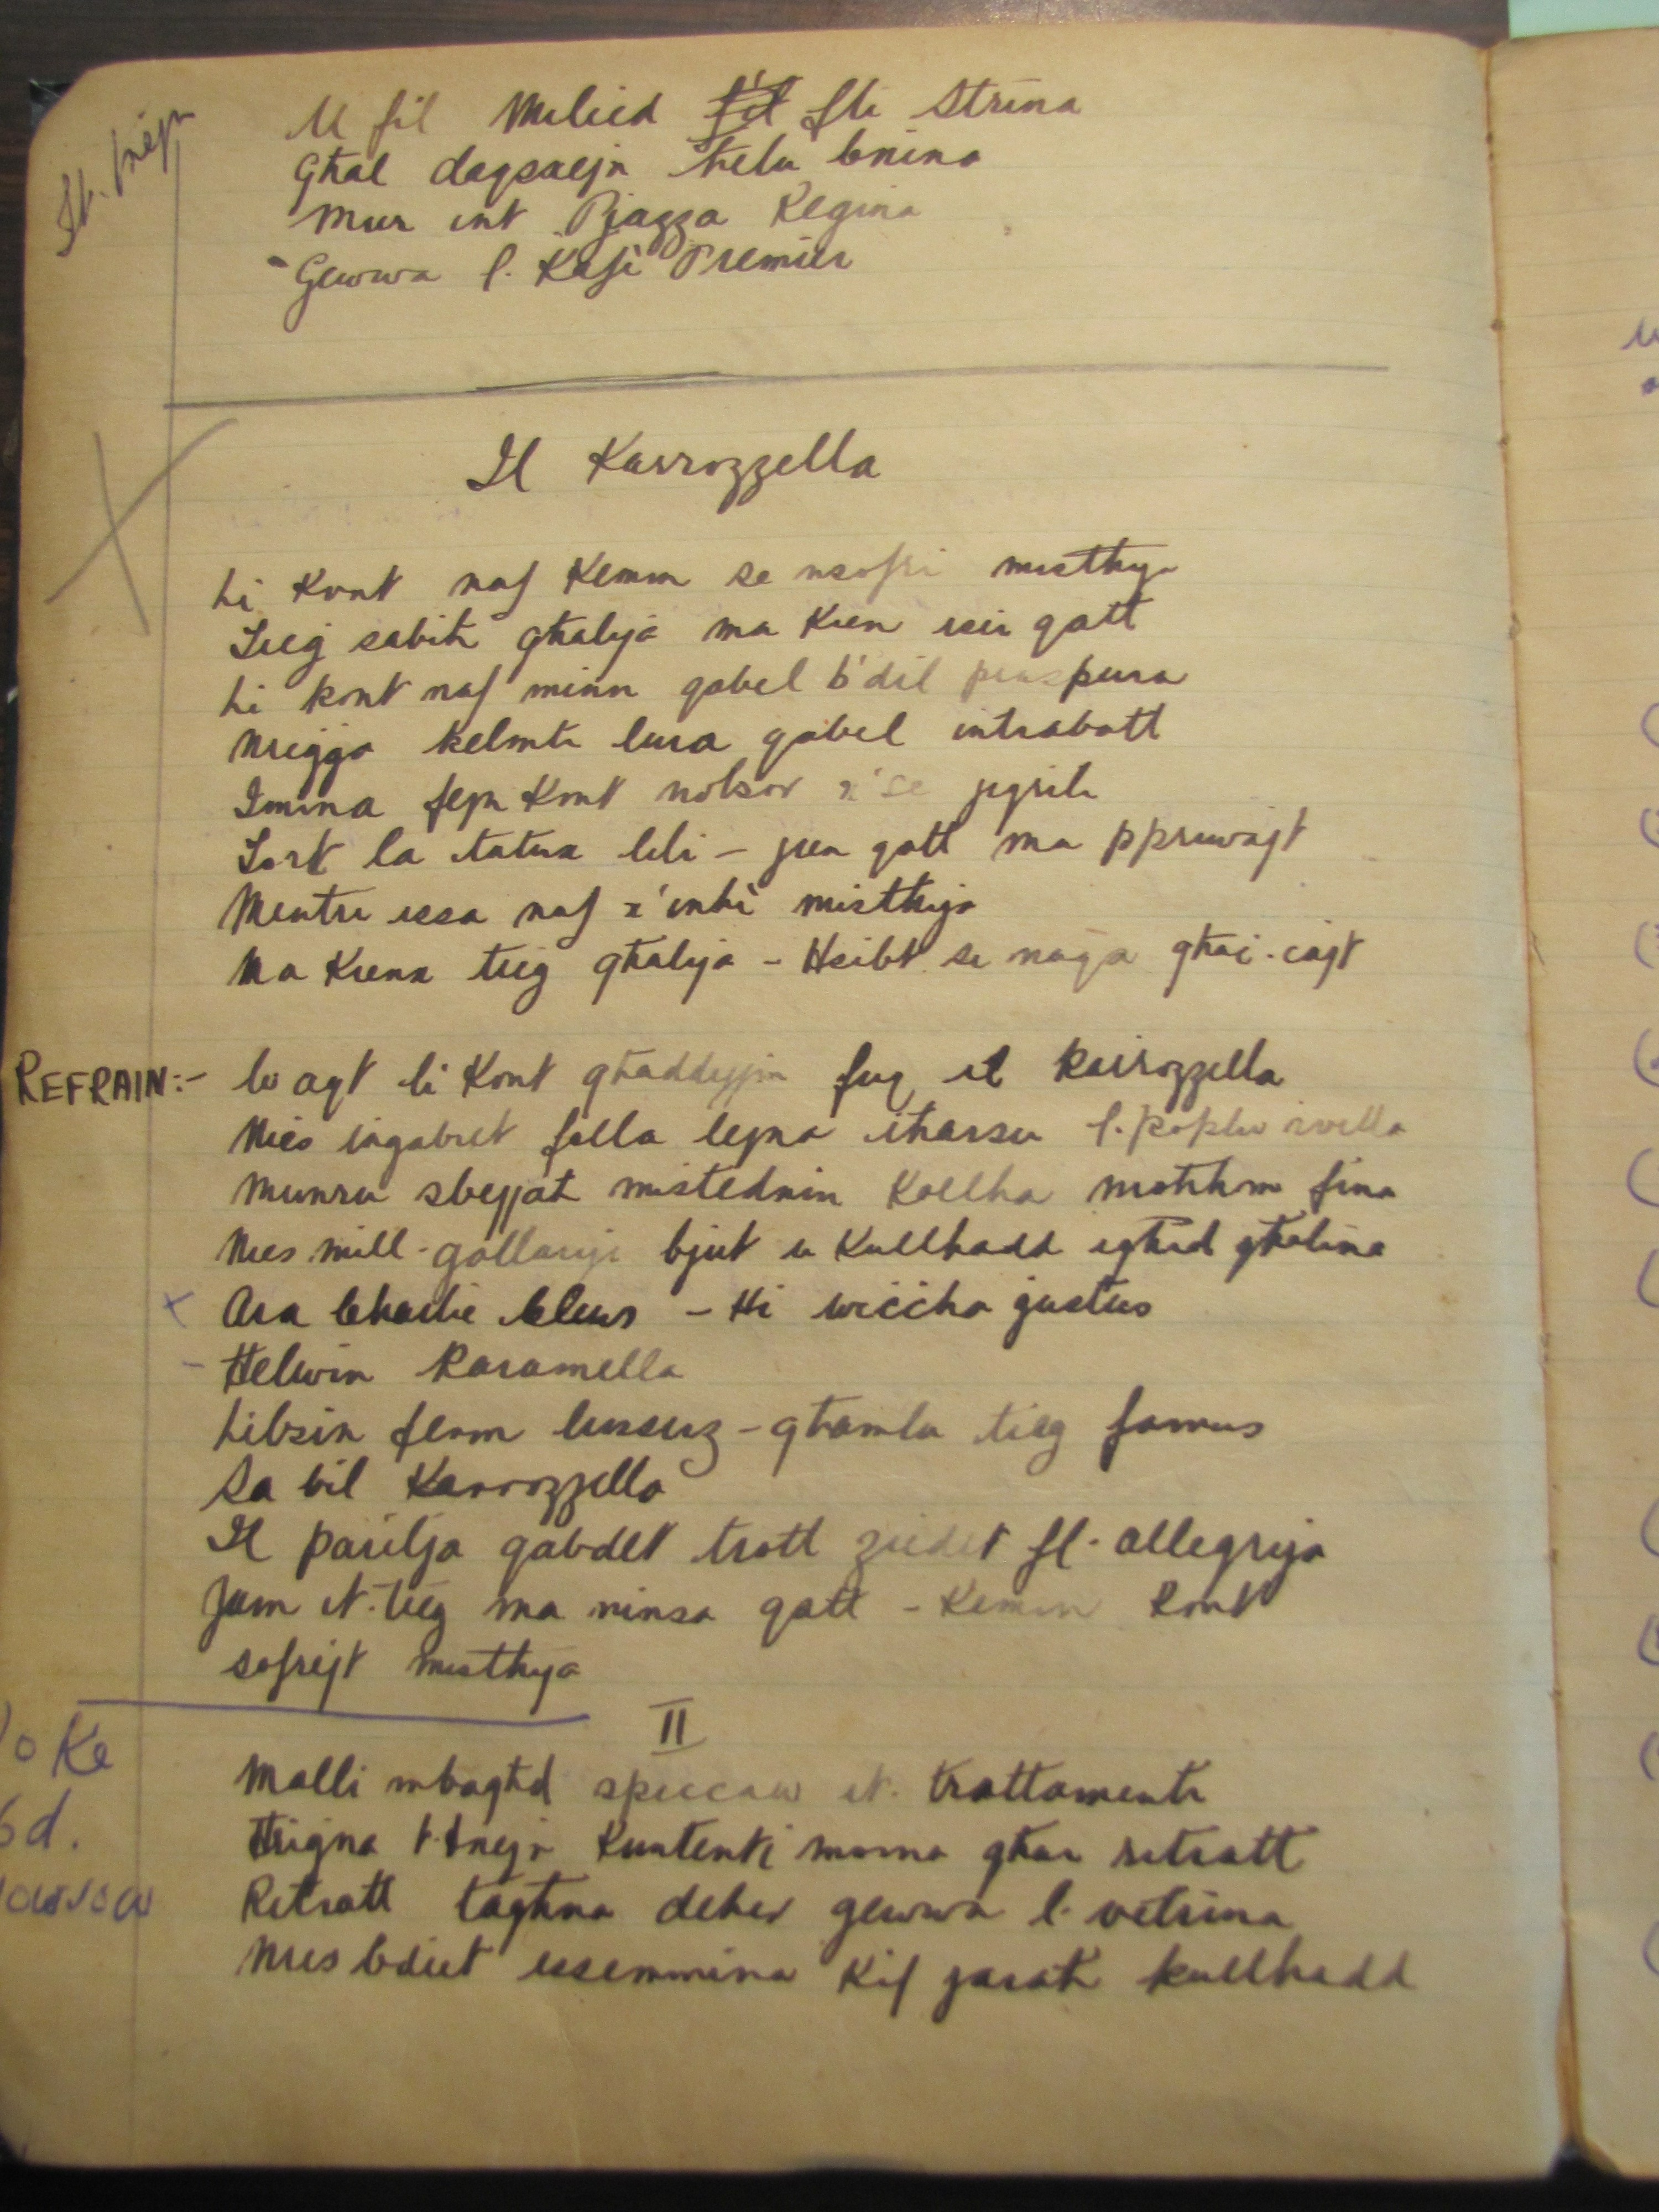 U fil Milied fli Strina
Għal daqsxejn ħelu bnina
Mur int Pjazza Regina
Gewwa l. Kafè Premier
Il Karrozzella
Li Kont naf Kemm se nsofri mistħija
Tieg sabiħ għalija ma Kien isir qatt
Li kont naf minn qabel b'dil purpura
Nreġġa kelmti lura qabel intrabatt
Imma fejn Kont nobsor x'se jiġrili
Lort la tatux lili - jien qatt ma ppruvajt
Mentri issa naf x'inhi mistħija
Ma Kienx tieg għalija - Hsibt se naqa għaċ-ċajt
REFRAIN:- Il waqt li Kont għaddejjin fuq il karrozzella
Nies inġabret folla lejna iħarsu l-
Munxu sbejjaħ mistednin Kollha f'moħħom fina
Nies mill-gallarji bjut u Kullħadd igħid għalina
Ara Charlie Claus - Hi wiċċha ġustus
Ħelwin Karamella
Libsin ferm lussuz - għamlu tieg famus
Sa bil Karrozzella
Il pariljа qabdet trott ziedet fl-allegrija
Jum it-tieg ma ninsa qatt - Kemm Kont
sofrejt mistħija
II
Malli mbagħd spiccaw it-trattamenti
Ħriġna t-tnejn Kuntenti morna għar-ritratt
Ritratt tagħna deher ġewwa l-vetrina
Nies bdiet issemmina Kif jaraħ kullħadd